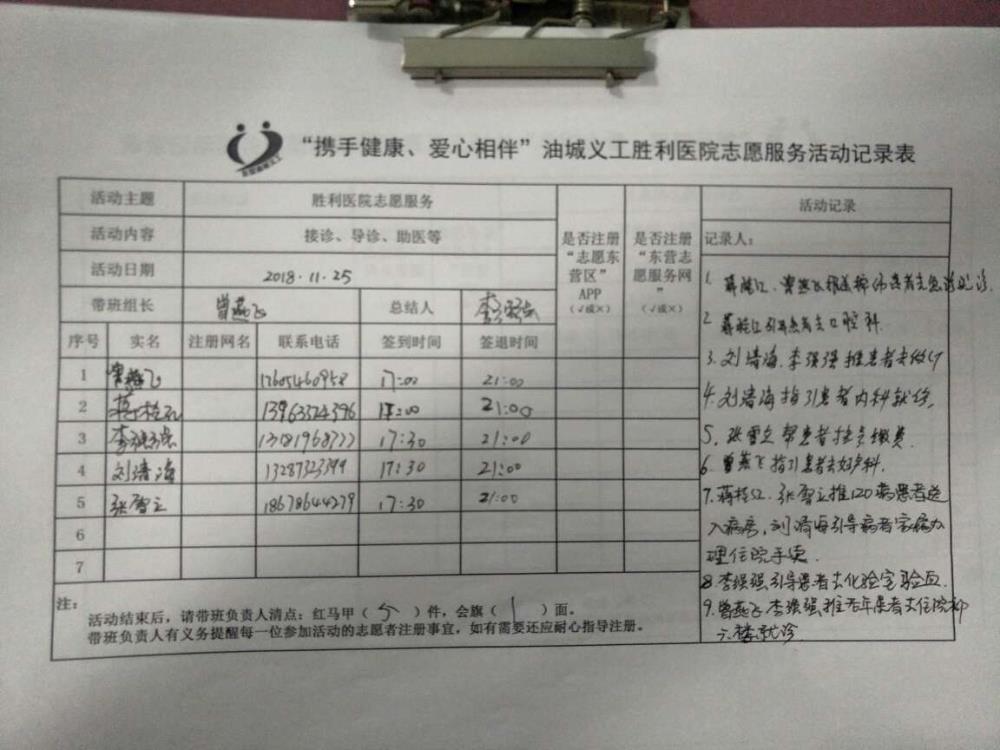 “携手健康、爱心相伴”油城义工胜利医院志愿服务活动记录表
活动主题 胜利医院志愿服务
活动内容 接诊、导诊、助医等
活动日期 2018.11.25
带班组长 曾燕飞 总结人 李强强
序号 实名 注册网名 联系电话 签到时间 签退时间
是否注册“志愿东营区”APP（√或×）
是否注册“东营志愿服务网”（√或×）
1 曾燕飞 13605460958 17:00 21:00
2 蒋桂红 13963324396 21:00
3 李强强 17:30 21:00
4 刘清海 13287323399 17:30 21:00
5 张雪立 18678644279 17:30 21:00
6
7
注：
活动结束后，请带班负责人清点：红马甲（5）件，会旗（1）面。
带班负责人有义务提醒每一位参加活动的志愿者注册事宜，如有需要还应耐心指导注册。
活动记录
记录人：
1. 曾燕飞 患者去急诊
2 患者去口腔科.
3. 刘清海.李强强推患者去做CT
4. 刘清海指引患者内科就诊.
5. 张雪立帮患者挂号缴费.
6. 曾燕飞指引患者去妇产科.
7. 张雪立推120患者送
入病房,刘清海引导病者家属办
理住院手续.
8. 李强强引导患者去化验室验血.
9. 曾燕飞.李强强推老年患者去住院部
六楼就诊